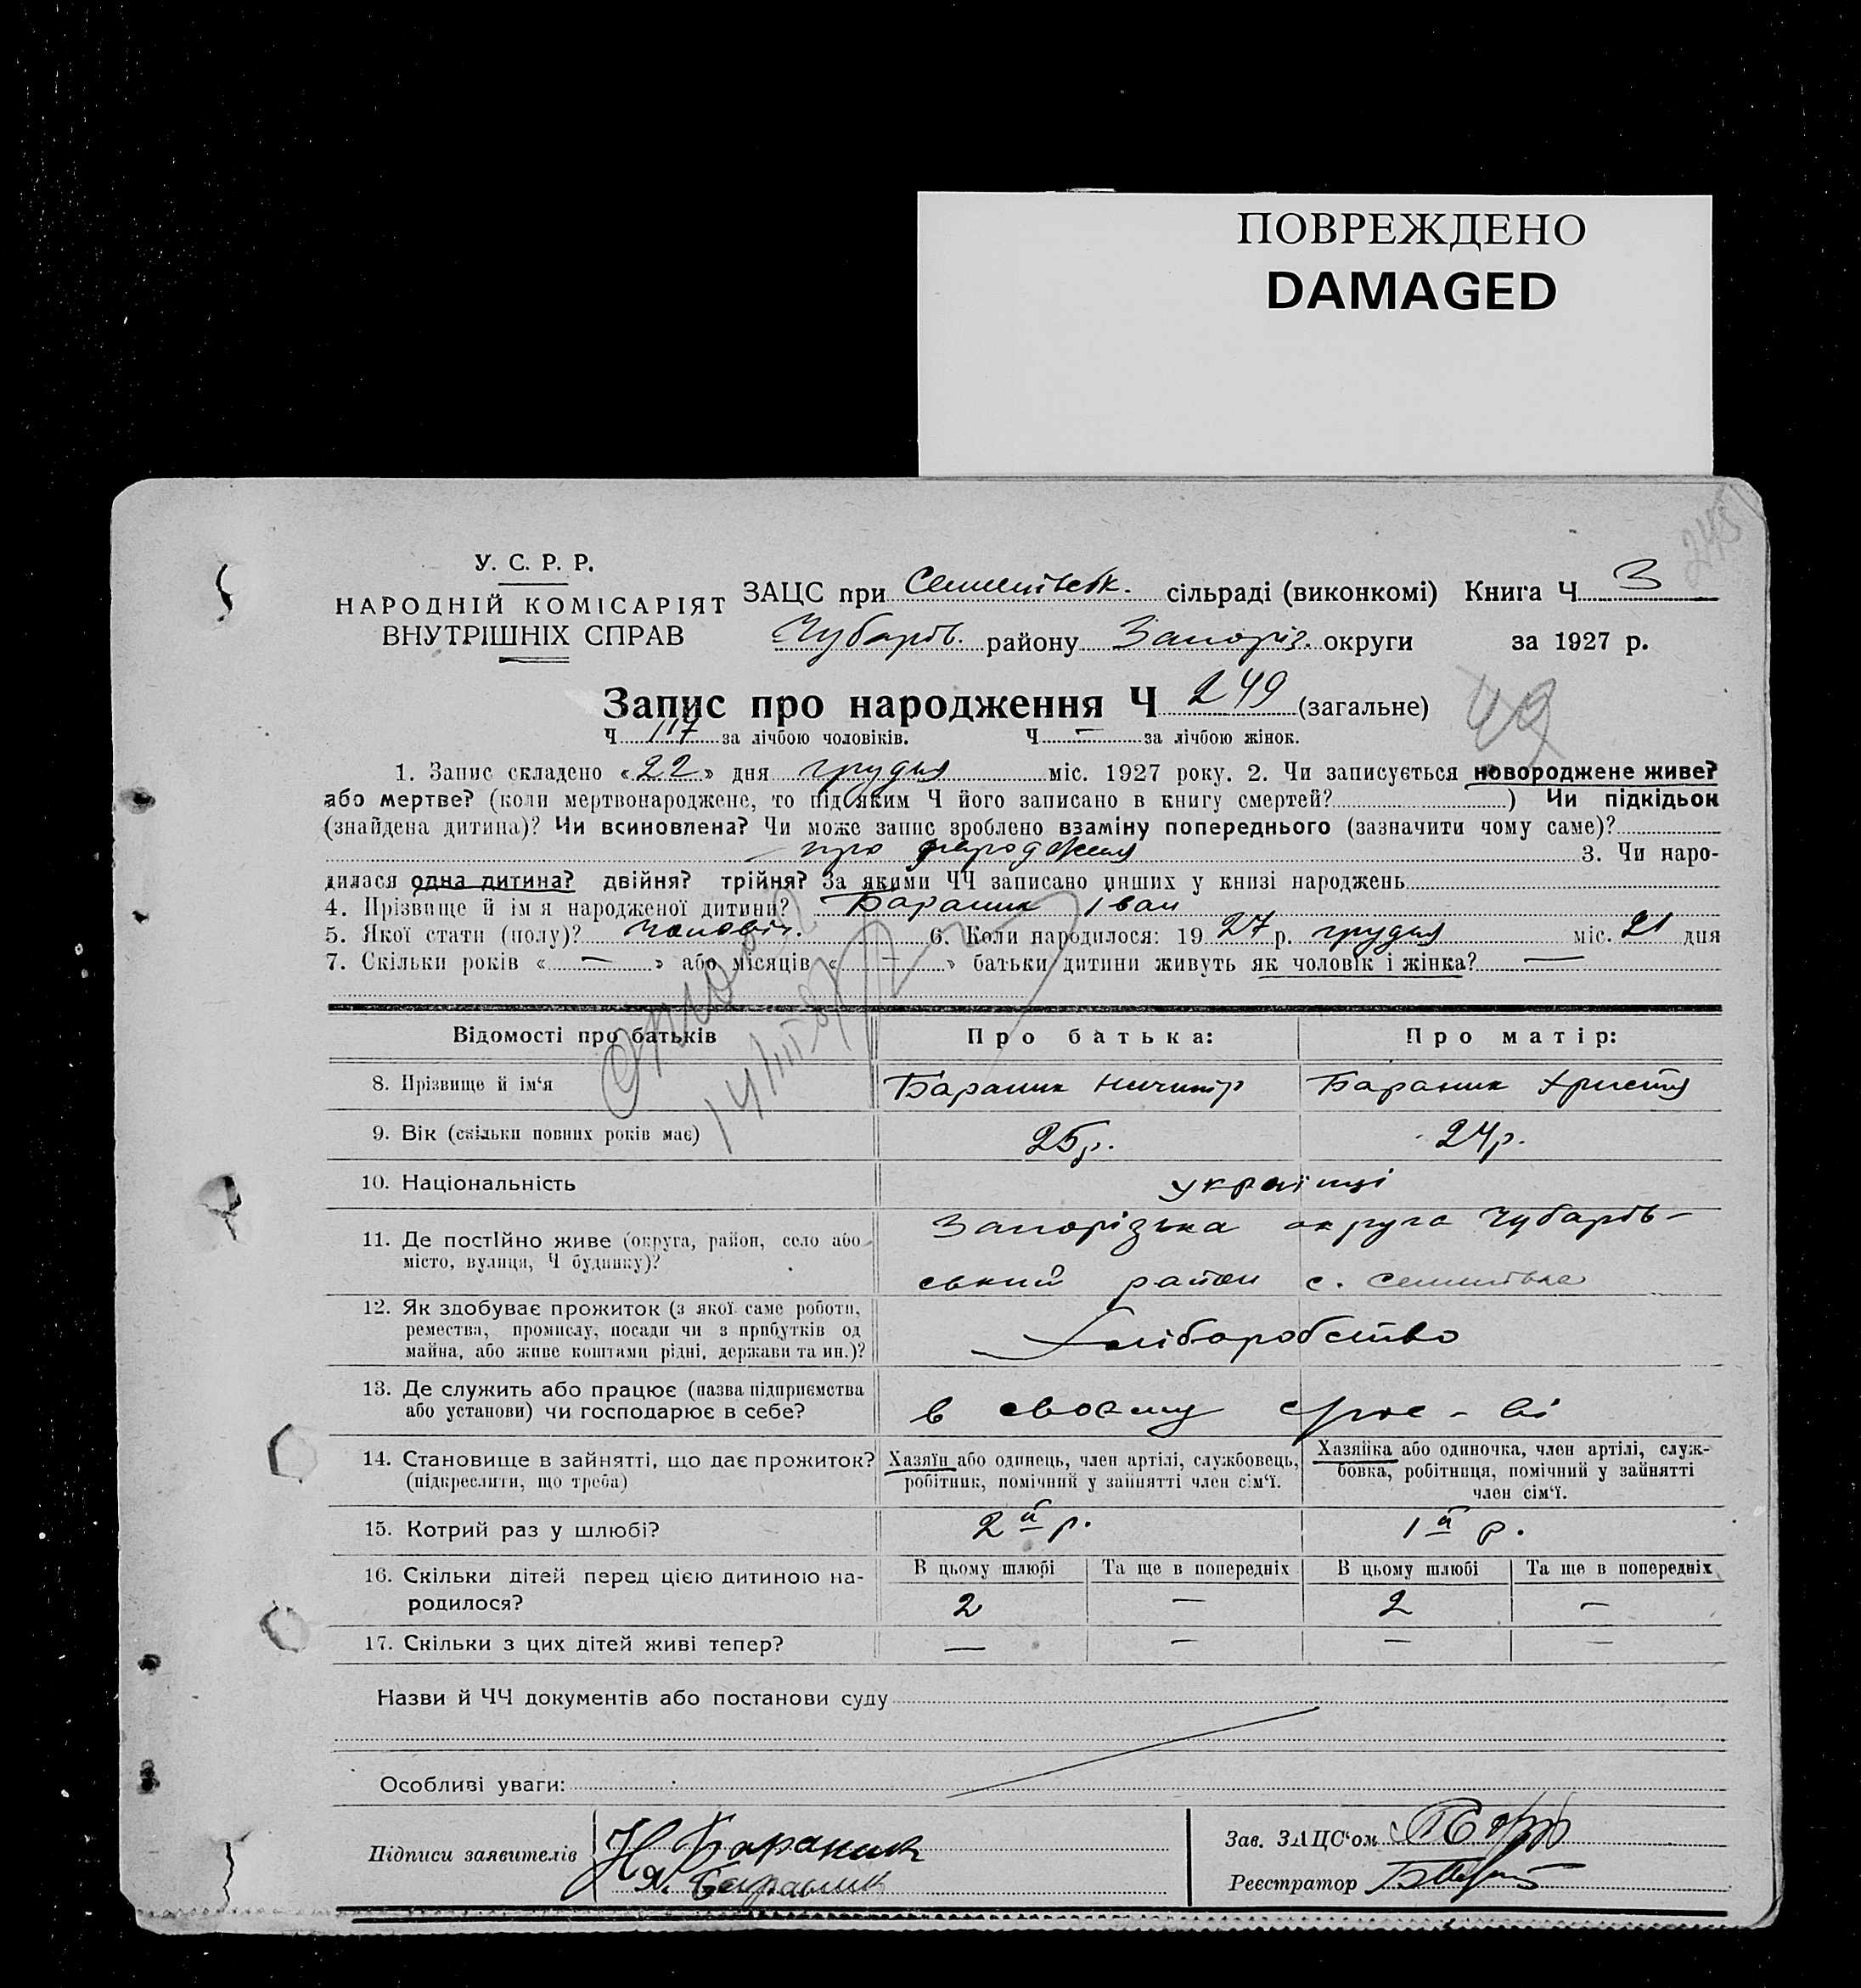 ПОВРЕЖДЕНО
DAMAGED
245
У. С. Р. Р.
НАРОДНІЙ КОМІСАРІЯТ
ВНУТРІШНІХ СПРАВ
ЗАЦС при Семенівськ. сільраді (виконкомі) Книга Ч 3
Чубарів. району Запоріз. округи за 1927 р.
Запис про народження Ч 249 (загальне)
49
Ч 117 за лічбою чоловіків. Ч — за лічбою жінок.
1. Запис складено «22» дня грудня міс. 1927 року. 2. Чи записується новороджене живе?
або мертве? (коли мертвонароджене, то під яким Ч його записано в книгу смертей?) Чи підкідьок
(знайдена дитина)? Чи всиновлена? Чи може запис зроблено взаміну попереднього (зазначити чому саме)?
про народження 3. Чи наро-
дилася одна дитина? двійня? трійня? За якими ЧЧ записано инших у книзі народжень
4. Прізвище й ім я народженої дитини? Бараник Іван
5. Якої стати (полу)? чоловіч. 6. Коли народилося: 1927 р. грудня міс. 21 дня
7. Скільки років «—» або місяців «—» батьки дитини живуть як чоловік і жінка? —
Відомості про батьків Про батька: Про матір:
8. Прізвище й ім‘я Бараник Ничипір Бараник Христя
9. Вік (скільки повних років має) 25 р. 24 р.
10. Національність українці
11. Де постійно живе (округа, район, село або місто, вулиця, Ч будинку)? Запорізька округа Чубарів-
ський район с. Семенівка
12. Як здобуває прожиток (з якої саме роботи,
ремества, промислу, посади чи з прибутків од
майна, або живе коштами рідні, держави та ин.)? Хліборобство
13. Де служить або працює (назва підприємства
або установи) чи господарює в себе? в своєму госп-ві
14. Становище в зайнятті, що дає прожиток?
(підкреслити, що треба)
Хазяїн або одинець, член артілі, службовець,
робітник, помічний у зайнятті член сім‘ї.
Хазяйка або одиночка, член артілі, служ-
бовка, робітниця, помічний у зайнятті
член сім‘ї.
15. Котрий раз у шлюбі? 2й р. 1й р.
16. Скільки дітей перед цією дитиною на-
родилося?
В цьому шлюбі Та ще в попередніх В цьому шлюбі Та ще в попередніх
2 — 2 —
17. Скільки з цих дітей живі тепер? — — — —
Назви й ЧЧ документів або постанови суду
Особливі уваги:
Підписи заявителів Н Бараник
Я. Бараник
Зав. ЗАЦС‘ом
Реєстратор